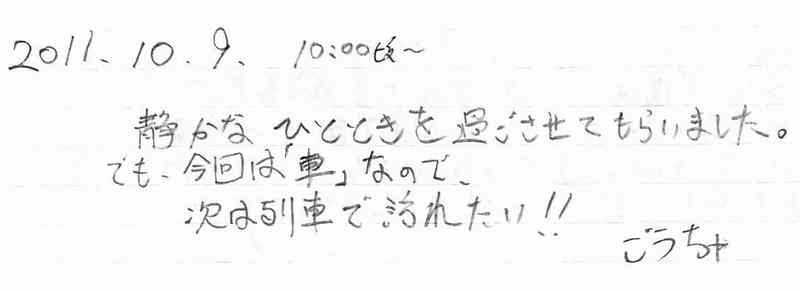 2011. 10. 9. 10:00頃~
静かなひとときを過ごさせてもらいました。
でも、今回は「車」なので、
次は列車で訪れたい!!
ごうちゃ